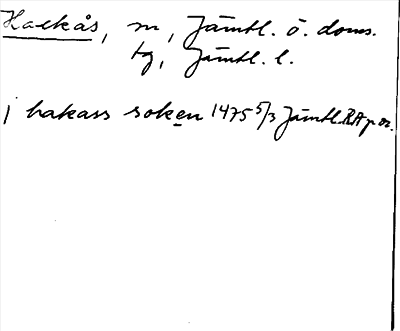 Hackås, sn, Jämtl. ö. doms.
tg, Jämtl. l.
j hakass soken 1475 5/3 Jämtl. RA p or.